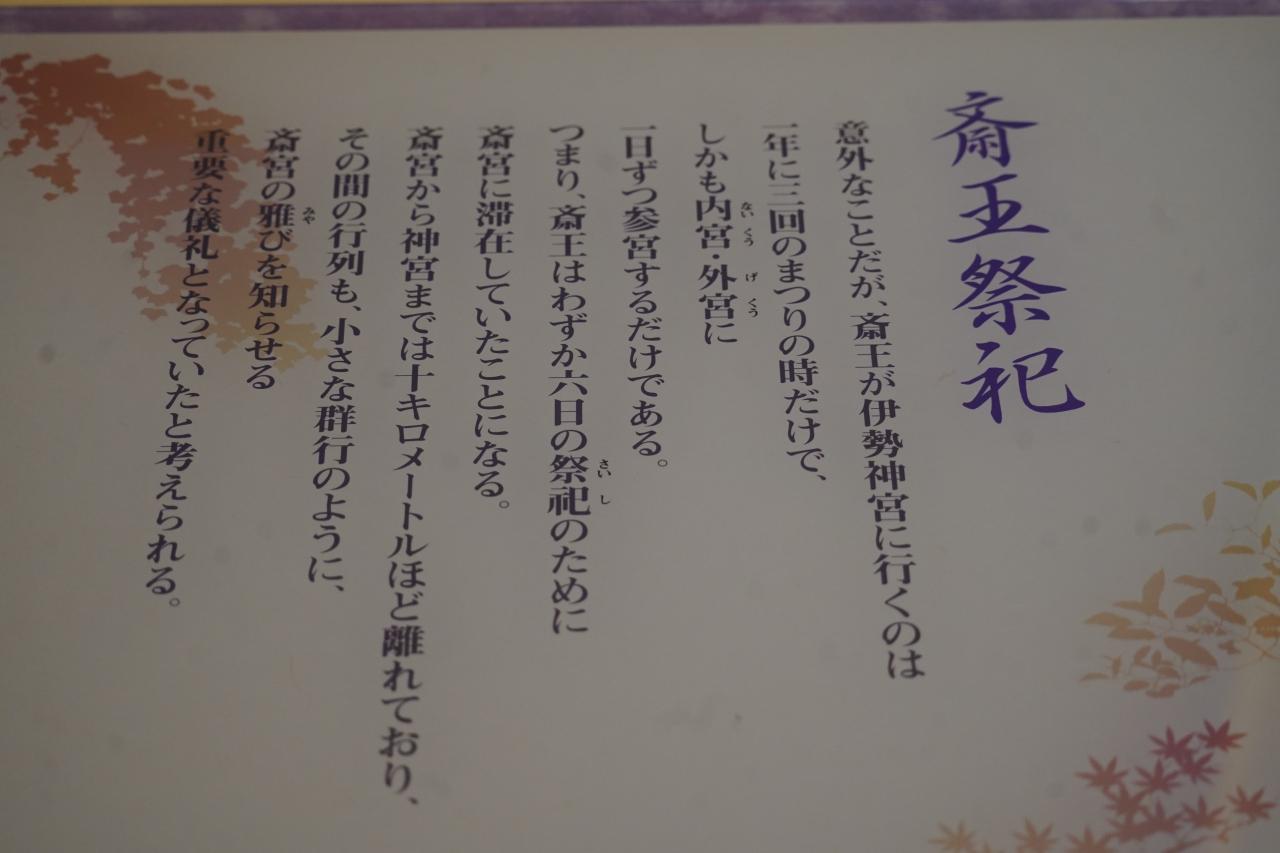 斎王祭祀
意外なことだが、斎王が伊勢神宮に行くのは
一年に三回のまつりの時だけで、
しかも内宮・外宮に
ないくう げくう
一日ずつ参宮するだけである。
つまり、斎王はわずか六日の祭祀のために
さいし
斎宮に滞在していたことになる。
斎宮から神宮までは十キロメートルほど離れており、
その間の行列も、小さな群行のように、
斎宮の雅びを知らせる
みや
重要な儀礼となっていたと考えられる。